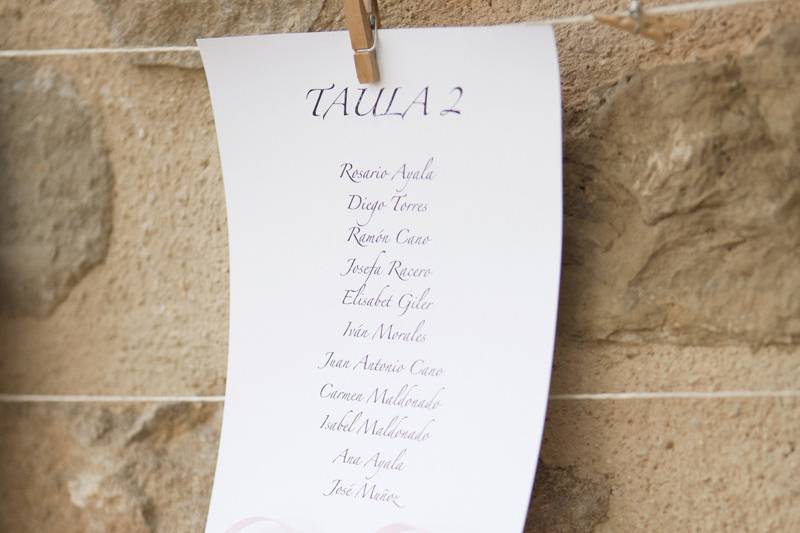 TAULA 2
Rosario Ayala
Diego Torres
Ramón Cano
Josefa Racero
Elisabet Giler
Iván Morales
Juan Antonio Cano
Carmen Maldonado
Isabel Maldonado
Ana Ayala
José Muñoz